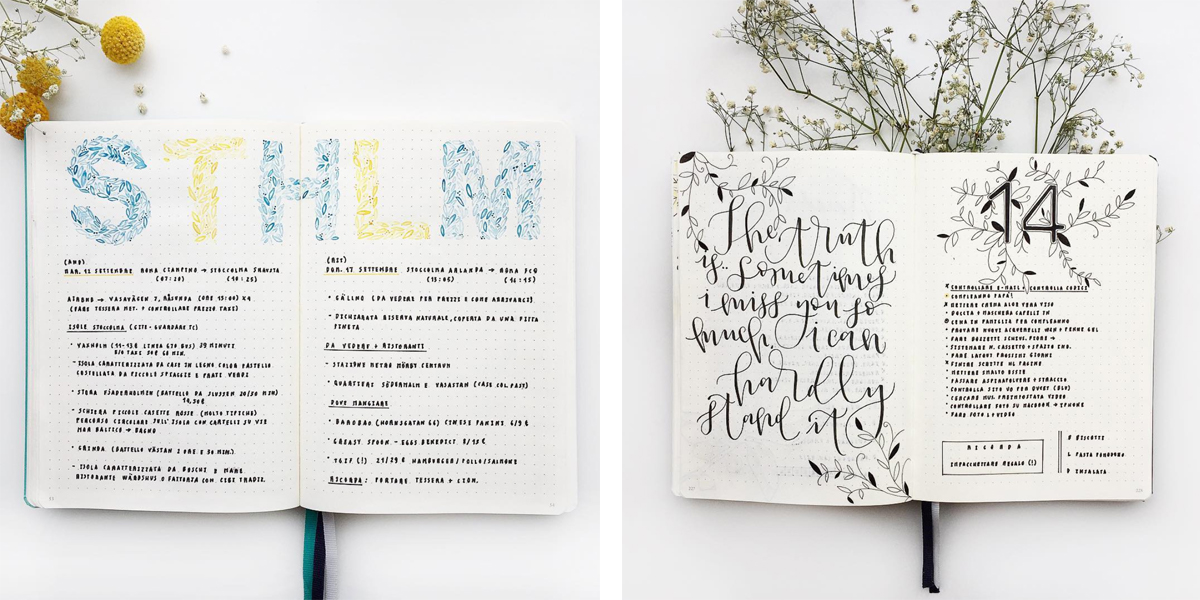 STHLM
(AND)
MAR. 12 SETTEMBRE ROMA CIAMPINO → STOCCOLMA SKAVSTA
(07:20) (10:25)
AIRBNB → VASAVÄGEN 7, (ORE 15:00) X4
(FARE TESSERA MET. + CONTROLLARE PREZZO TAXI)
ISOLE STOCCOLMA (GITE - GUARDARE TC)
• VAXHOLM (11-13€ LINEA 670 BUS) 39 MINUTI
B/O TAXI 30€ 60 MIN.
- ISOLA CARATTERIZZATA DA CASE IN LEGNO COLOR PASTELLO.
COSTELLATA DA PICCOLE SPIAGGE E PRATI VERDI
• STORA FJÄDERHOLMEN (BATTELLO DA SLUSSEN 20/30 MIN)
- SCHIERA PICCOLE CASETTE ROSSE (MOLTO TIPICHE)
PERCORSO CIRCOLARE DELL'ISOLA CON CARTELLI SU VIE
MAR BALTICO → BAGNO
• GRINDA (BATTELLO VÄSTAN 2 ORE E 30 MIN.)
- ISOLA CARATTERIZZATA DA BOSCHI E MARE
RISTORANTE WÄRDSHUS O FATTORIA CON CIBI TRADIZ.
(RIT)
DOM. 17 SETTEMBRE STOCCOLMA ARLANDA → ROMA FCO
(13:05) (16:15)
• GÄLLNO (DA VEDERE PER PREZZI E COME ARRIVARCI)
- DICHIARATA RISERVA NATURALE, COPERTA DA UNA FITTA
PINETA
DA VEDERE + RISTORANTI
• STAZIONE METRO MÖRBY CENTRUM
• QUARTIERI SÖDERMALM E VASASTAN (CASE COL. PAST)
DOVE MANGIARE
• BAOBAO (HORNSGATAN 66) CINESE PANINI. 6/9 €
• GREASY SPOON - EGGS BENEDICT. 8/15 €
• TGIF (!) 25/29 € HAMBURGER/POLLO/SALMONE
RICORDA: PORTARE TESSERA + LION.
The truth
is.. Sometimes
i miss you so
much, i can
hardly
stand it
14
CONTROLLARE E-MAIL + CONTROLLA CODICE
COMPLEANNO PAPÀ!
METTERE CREMA ALOE VERA VISO
DOCCIA + MASCHERA CAPELLI TN
CENA IN FAMIGLIA PER COMPLEANNO
PROVARE NUOVI ACQUERELLI W&N + PENNE GEL
FARE BOZZETTI SCHIZZI, FIORE →
SISTEMARE N. CASSETTO + SPAZIO END.
FARE LAYOUT PROSSIMI GIORNI
FINIRE SCRITTE NL PAGINE
METTERE SMALTO ESSIE
PASSARE ASPIRAPOLVERE + STRACCIO
CONTROLLA SITO VO PER QUVET (BLU)
CERCARE MUS. PREIMPOSTATA VIDEO
CONTROLLARE FOTO SU MACBOOK → IPHONE
FARE FOTO L VIDEO
RICORDA
IMPACCHETTARE REGALO (!)
B BISCOTTI
L PASTA POMODORO
D INSALATA